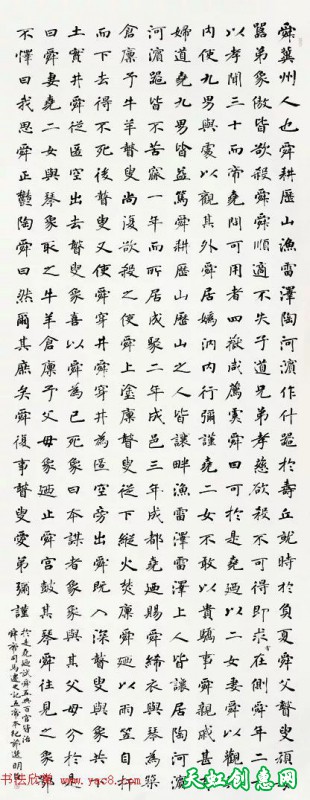 舜冀州人也舜耕歷山漁雷澤陶河濱作什器於壽丘就時於負夏舜父瞽叟頑母
嚚弟象傲皆欲殺舜舜順適不失子道兄弟孝慈欲殺不可得即求嘗在側舜年二十
以孝聞三十而帝堯問可用者四嶽咸薦虞舜曰可於是堯迺以二女妻舜以觀其
內使九男與處以觀其外舜居媯汭內行彌謹堯二女不敢以貴驕事舜親戚甚有
婦道堯九男皆益篤舜耕歷山歷山之人皆讓畔漁雷澤雷澤上人皆讓居陶
河濱器皆不苦窳一年而所居成聚二年成邑三年成都堯迺賜舜絺衣與琴為築
倉廩予牛羊瞽叟尚復欲殺之使舜上塗廩瞽叟從下縱火焚廩舜迺以兩笠自扞
而下去得不死後瞽叟又使舜穿井舜穿井為匿空旁出舜既入深瞽叟與象共下
土實井舜從匿空出去瞽叟象喜以舜為已死象曰本謀者象象與其父母分於是
曰舜妻堯二女與琴象取之牛羊倉廩予父母象迺止舜宮鼓其琴舜往見之象
不懌曰我思舜正鬱陶舜曰然爾其庶矣舜復事瞽叟愛弟彌謹
於是堯迺試舜五典百官皆治
舜帝司馬遷史記五帝本紀節選 明
书法欣赏 www.yac8.com
天虹创意网